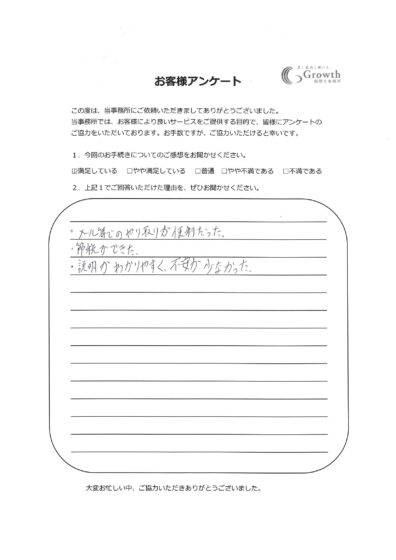 Growth
お客様アンケート
この度は、当事務所にご依頼いただきましてありがとうございました。
当事務所では、お客様により良いサービスをご提供する目的で、皆様にアンケートの
ご協力をいただいております。お手数ですが、ご協力いただけると幸いです。
１．今回のお手続きについてのご感想をお聞かせください。
☑満足している □やや満足している □普通 □やや不満である □不満である
２．上記１でご回答いただけた理由を、ぜひお聞かせください。
・メール等でのやり取りが便利だった。
・節税ができた。
・説明がわかりやすく、不安が少なかった。
大変お忙しい中、ご協力いただきありがとうございました。